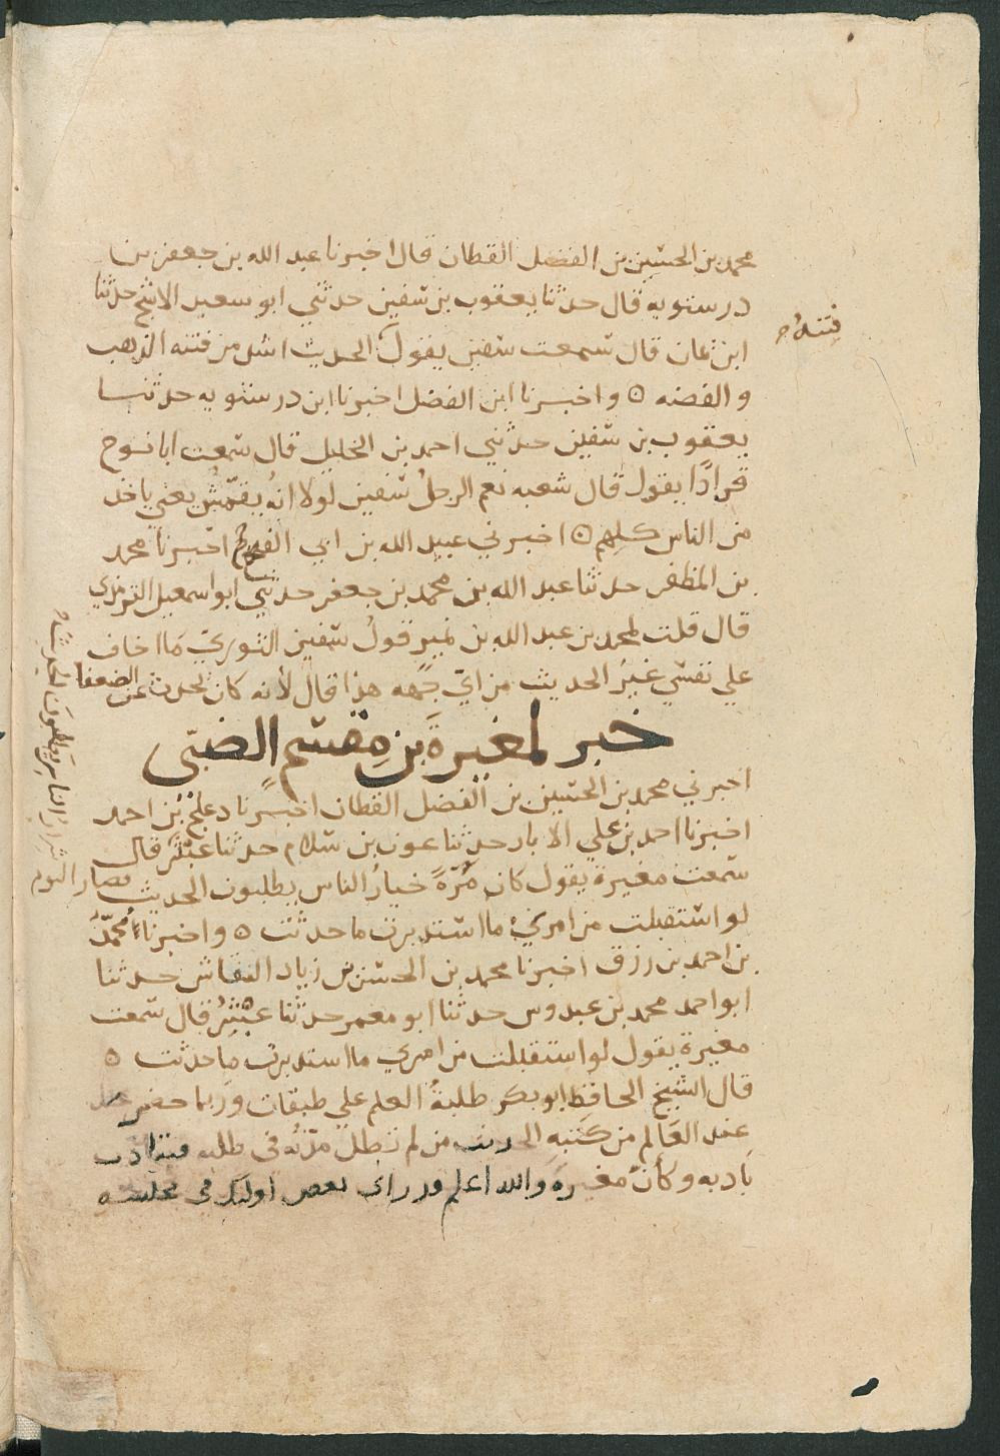 محمد بن الحسين بن الفضل القطان قال اخبرنا عبد الله بن جعفر بن
درستويه قال حدثنا يعقوب بن سفين حدثني ابو سعيد الاشج حدثنا
ابن يمان قال سمعت سفين يقول الحديث اشد من فتنه الذهب
فتنة
والفضه ه واخبرنا ابن الفضل اخبرنا ابن درستويه حدثنا
يعقوب بن سفين حدثني احمد بن الخليل قال سمعت ابا نوح
قرادًا يقول قال شعبه نعم الرجلُ سفين لولا انهُ يقمّش يعني ياخذ
من الناس كلهم ه اخبرني عبيد الله بن ابي الفتح اخبرنا محمد
بن المظفر حدثنا عبد الله بن محمد بن جعفر حدثني ابو اسمعيل الترمذي
قال قلت لمحمد بن عبد الله بن نمير قولُ سفين الثوريّ مَا اخاف
علي نفسي غيرُ الحديث من ايّ جهه هذا قال لأنه كان يحدث عن الضعفا
خبر لمغيرةَ بن مِقسم الضبّى
اخبرني محمد بن الحسين بن الفضل القطان اخبرنا دعلج بن احمد
اخبرنا احمد بن علي الابار حدثنا عون بن سلام حدثنا عبثر قال
سمعت مغيرة يقول كان مُرّةً خيارُ الناس يطلبون الحديث فصار اليوم
شرار الناس يطلبون الحديث
لو استقبلت من امريْ ما استدبرت ما حدثت ه واخبرناه مُحمّدُ
بن احمد بن رزق اخبرنا محمد بن الحسن بن زياد النقاش حدثنا
ابو احمد محمد بن عبدوس حدثنا ابو معمر حدثنا عبثرُ قال سمعت
مغيرة يقول لو استقبلت من امري ما استدبرت ما حدثت ه
قال الشيخ الحافظ ابو بكر طلبةُ العلم علي طبقات وربما حضر
عند العَالم من كَتَبةِ الحديث من لم تطل مدّتُه في طلبه فيتادب
بادبه وكأنّ مغيرة والله اعلم قد راى بعض اوليك في مجلسه